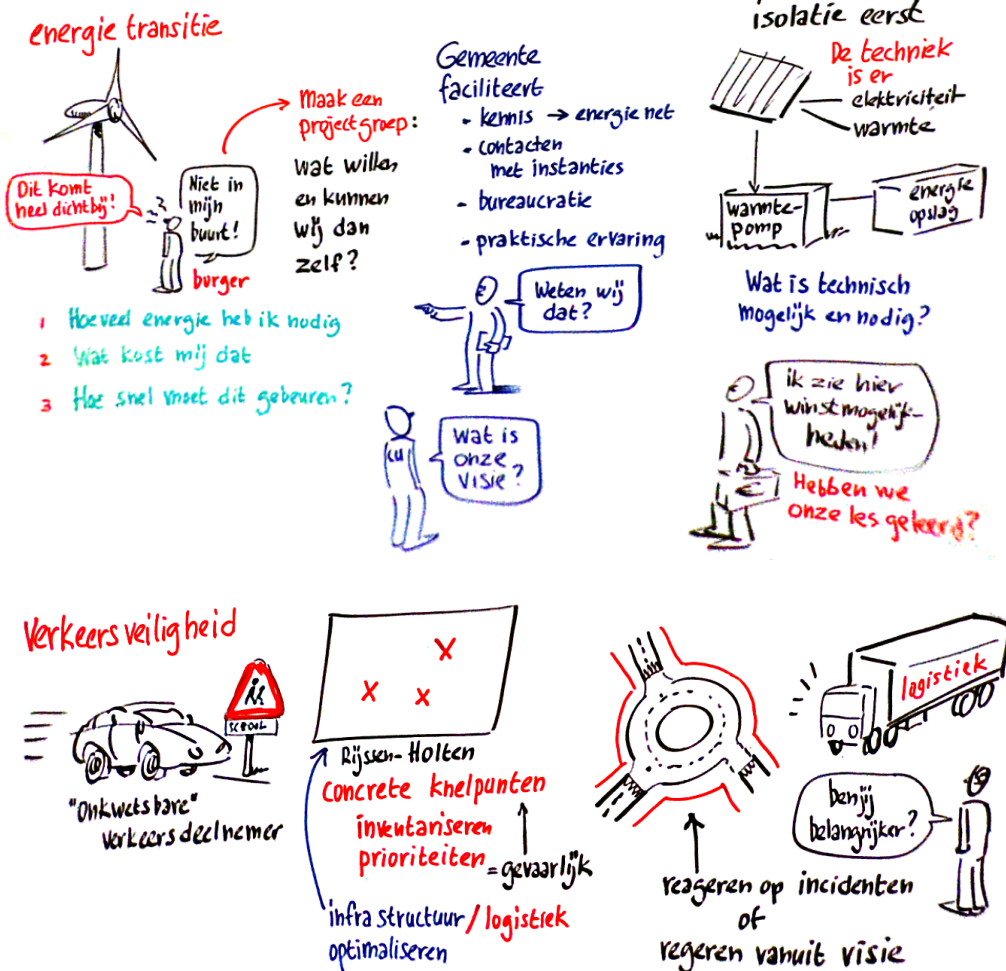 energie transitie
Dit komt
heel dichtbij!
Niet in
mijn
buurt!
burger
Maak een
projectgroep:
wat willen
en kunnen
wij dan
zelf?
1 Hoeveel energie heb ik nodig
2 Wat kost mij dat
3 Hoe snel moet dit gebeuren?
Gemeente
faciliteert
- kennis → energie net
- contacten
met instanties
- bureaucratie
- praktische ervaring
Weten wij
dat?
CU
Wat is
onze
visie?
isolatie eerst
De techniek
is er
elektriciteit
warmte
warmte-
pomp
energie
opslag
Wat is technisch
mogelijk en nodig?
ik zie hier
winstmogelijk-
heden!
€
Hebben we
onze les geleerd?
Verkeersveiligheid
SCHOOL
"Onkwetsbare"
verkeersdeelnemer
X
X X
Rijssen-Holten
concrete knelpunten
inventariseren
prioriteiten = gevaarlijk
infrastructuur / logistiek
optimaliseren
logistiek
ben jij
belangrijker?
reageren op incidenten
of
regeren vanuit visie